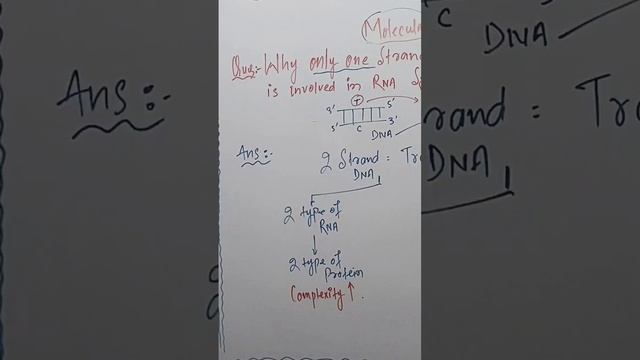 Molecula
Ques:- Why only one Stran
is involved in RNA S
T
3' 5'
5' C 3'
DNA
Ans:- 2 Strand = Tr
DNA
2 type of
RNA
2 type of
Protein
Complexity ↑.
Ans:-
C
DNA
rand = Tra
DNA